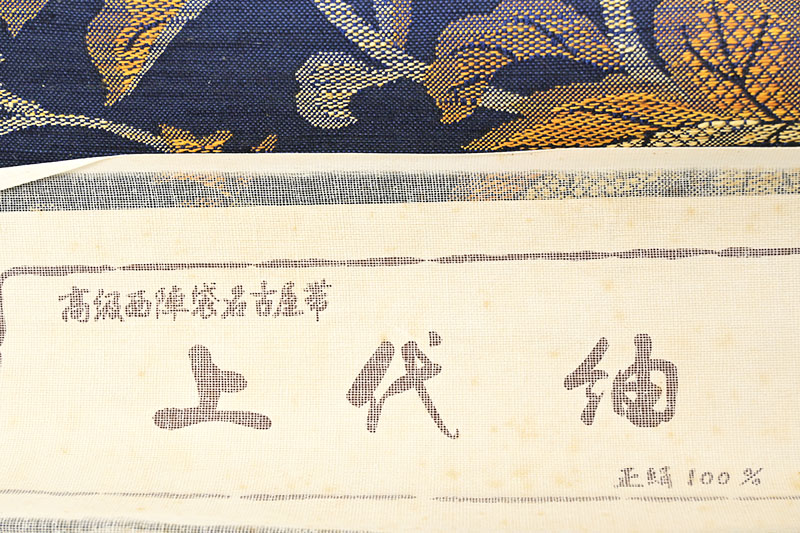 高級西陣袋名古屋帯
上代紬
正絹100%